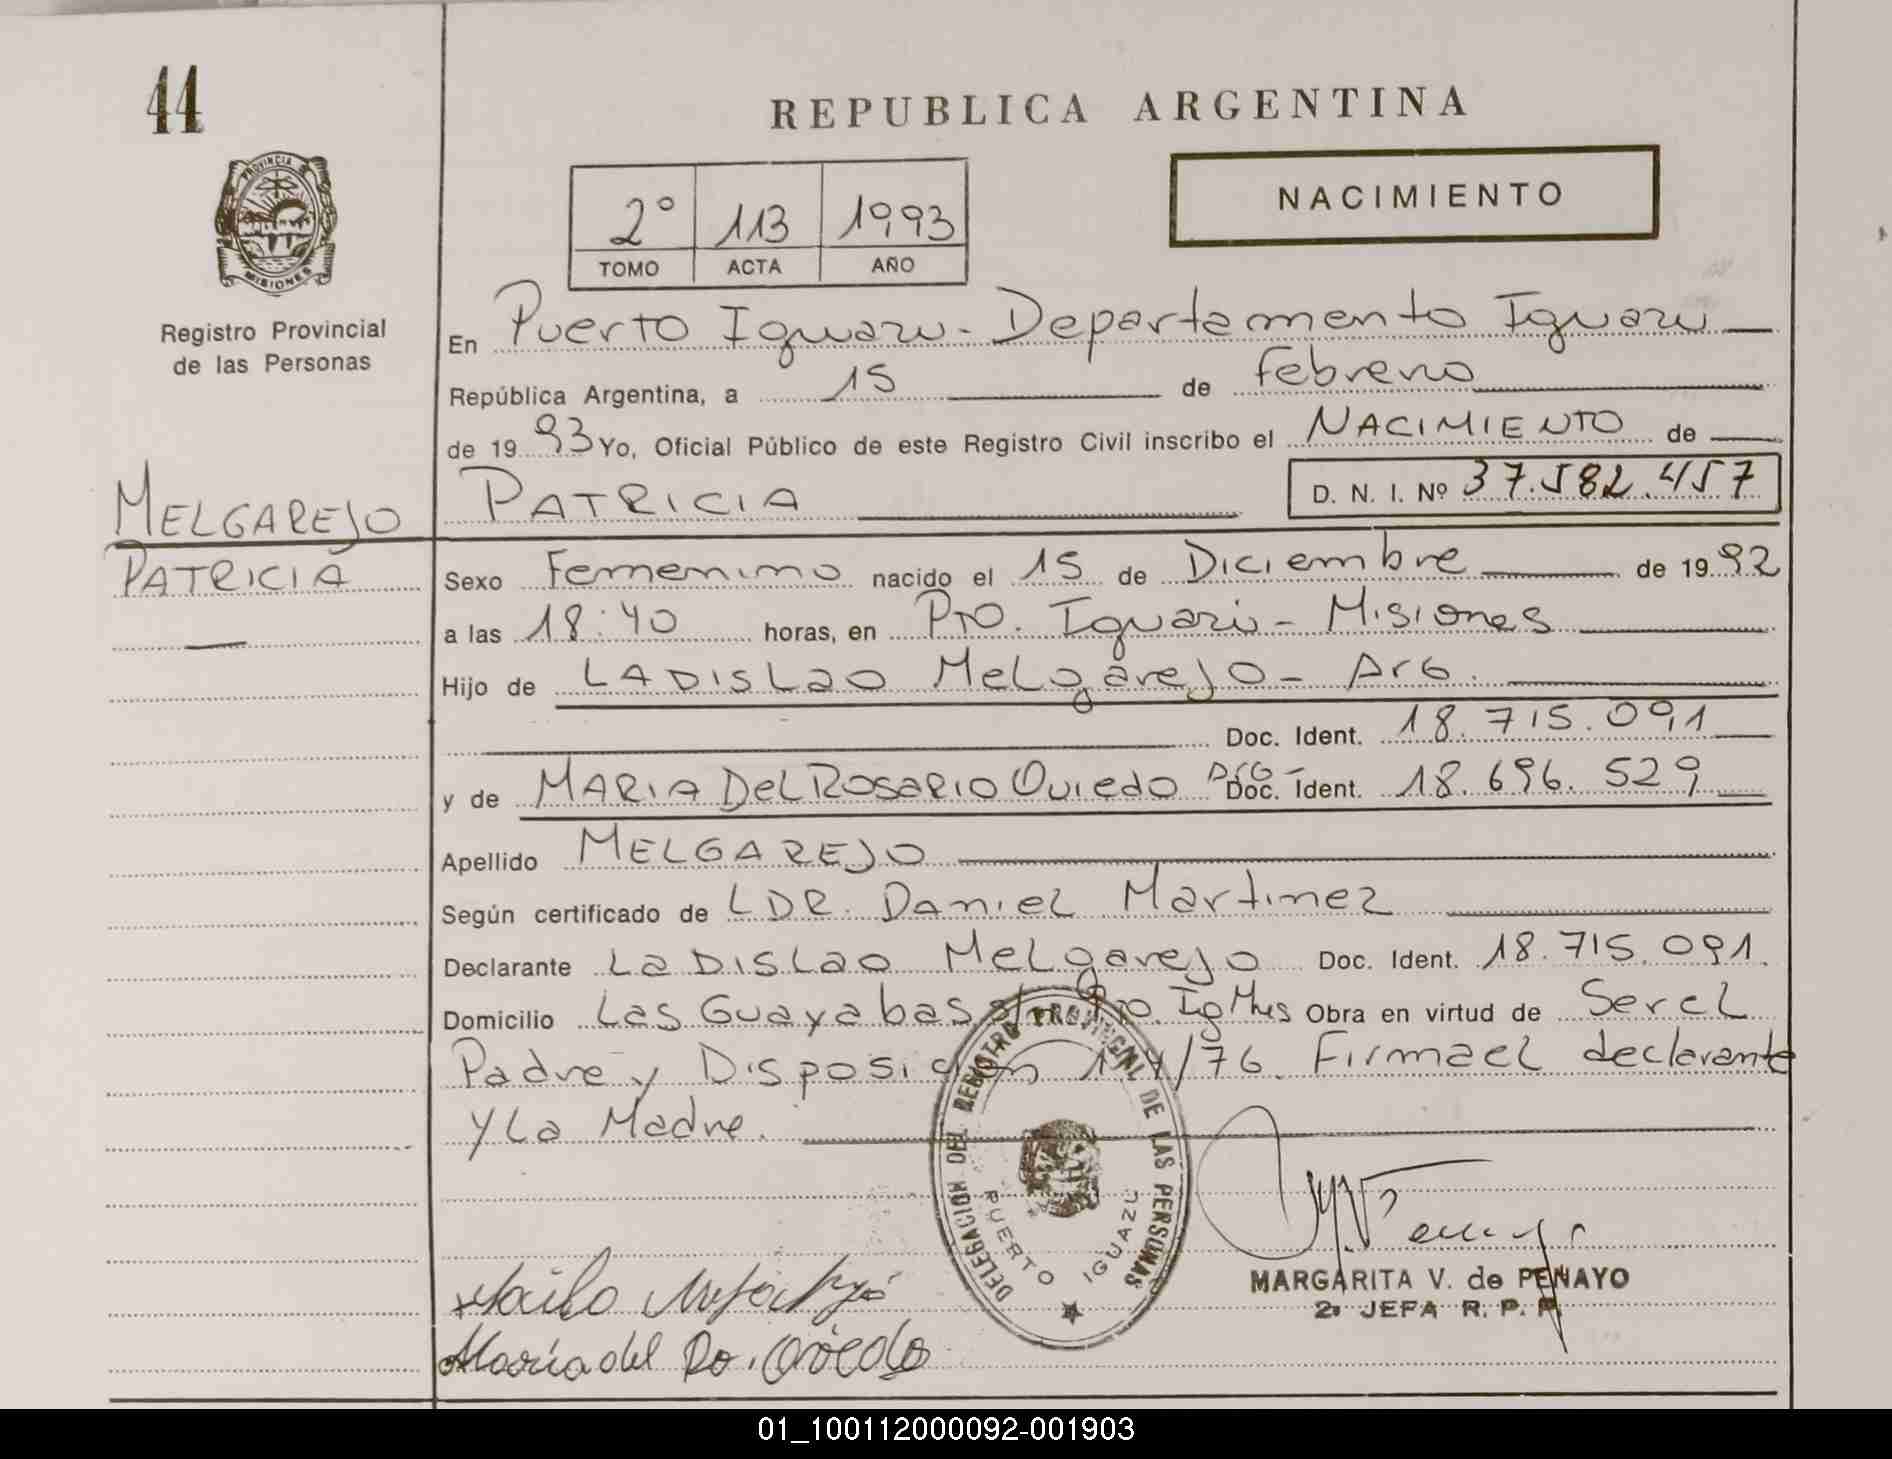 44
REPUBLICA ARGENTINA
PROVINCIA
MISIONES
Registro Provincial
de las Personas
2º 113 1993
TOMO ACTA AÑO
NACIMIENTO
En Puerto Iguazu - Departamento Iguazu
República Argentina, a 15 de febrero
de 1993 Yo, Oficial Público de este Registro Civil inscribo el NACIMIENTO de
PATRICIA D. N. I. Nº 37.582.457
MELGAREJO
PATRICIA
Sexo Femenino nacido el 15 de Diciembre de 1992
a las 18:40 horas, en Pto. Iguazu - Misiones
Hijo de LADISLao MeLgarejo - Arg.
Doc. Ident. 18.715.091
y de MARIA DeL ROSARIO Oviedo Arg - Doc. Ident. 18.696.529
Apellido MELGAREJO
Según certificado de LDR. Daniel Martinez
Declarante LaDISLao MeLgarejo Doc. Ident. 18.715.091.
Domicilio Las Guayabas s/n Pto. Ig Mnes Obra en virtud de Ser el
Padre y Disposicion /76. Firma el declarante
y La Madre.
DELEGACION DEL REGISTRO PROVINCIAL DE LAS PERSONAS
PUERTO IGUAZU
MARGARITA V. de PENAYO
2ª JEFA R. P. P.
María del Ro. Oviedo
01_100112000092-001903